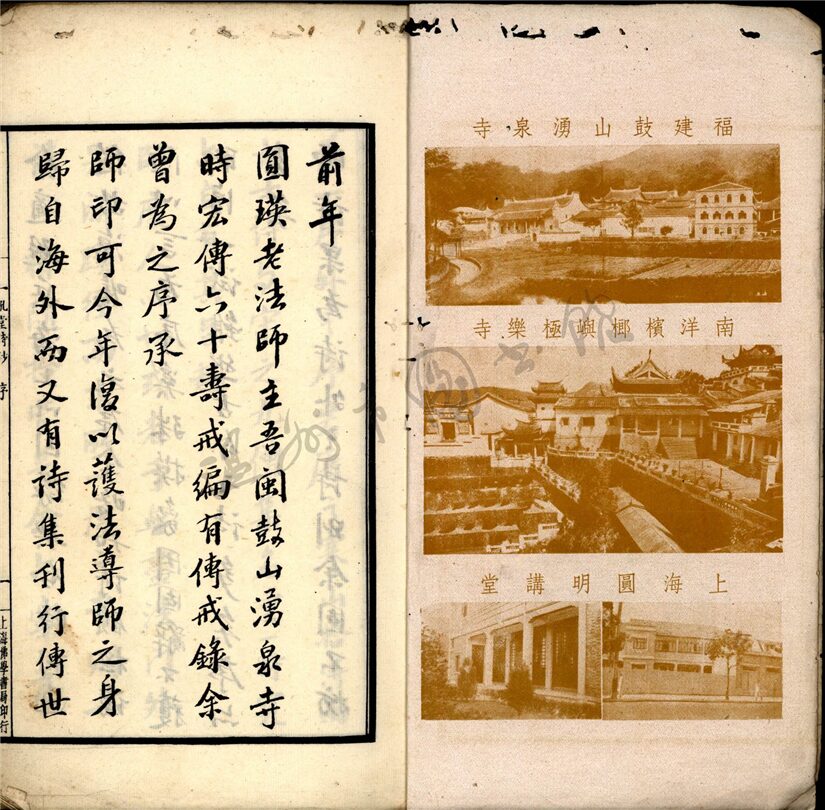 福建鼓山湧泉寺
南洋檳榔嶼極樂寺
上海圓明講堂
前年
圓瑛老法師主吾閩鼓山湧泉寺
時宏傳六十壽戒編有傳戒錄余
曾為之序承
師印可今年復以護法導師之身
歸自海外而又有詩集刊行傳世
一吼堂詩鈔 序
上海佛學書局印行